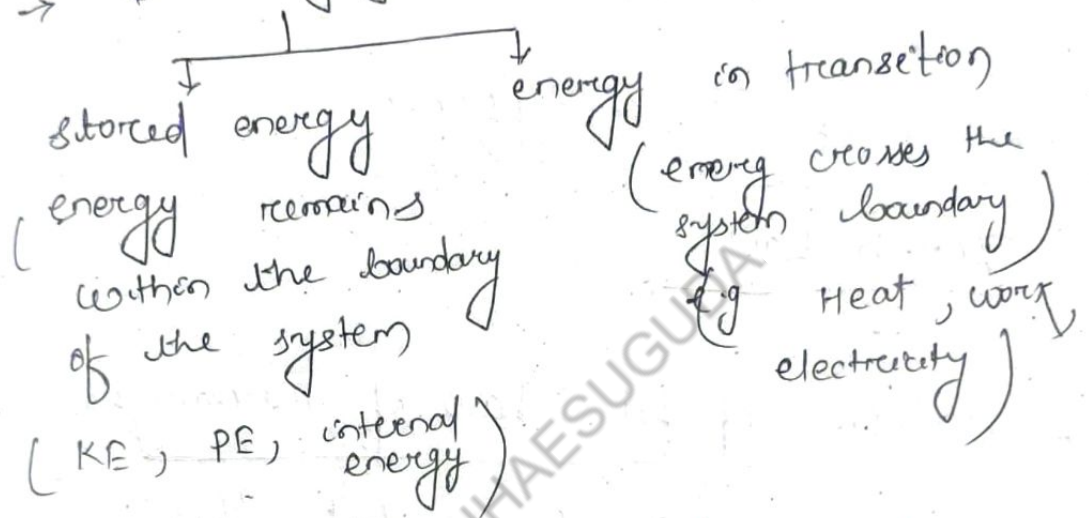 stored energy
(energy remains
within the boundary
of the system
(KE, PE, internal
energy)
energy in transetion
(emerg crosses the
system boundary)
(e.g Heat, work,
electrecity)
JHAESUGUDA